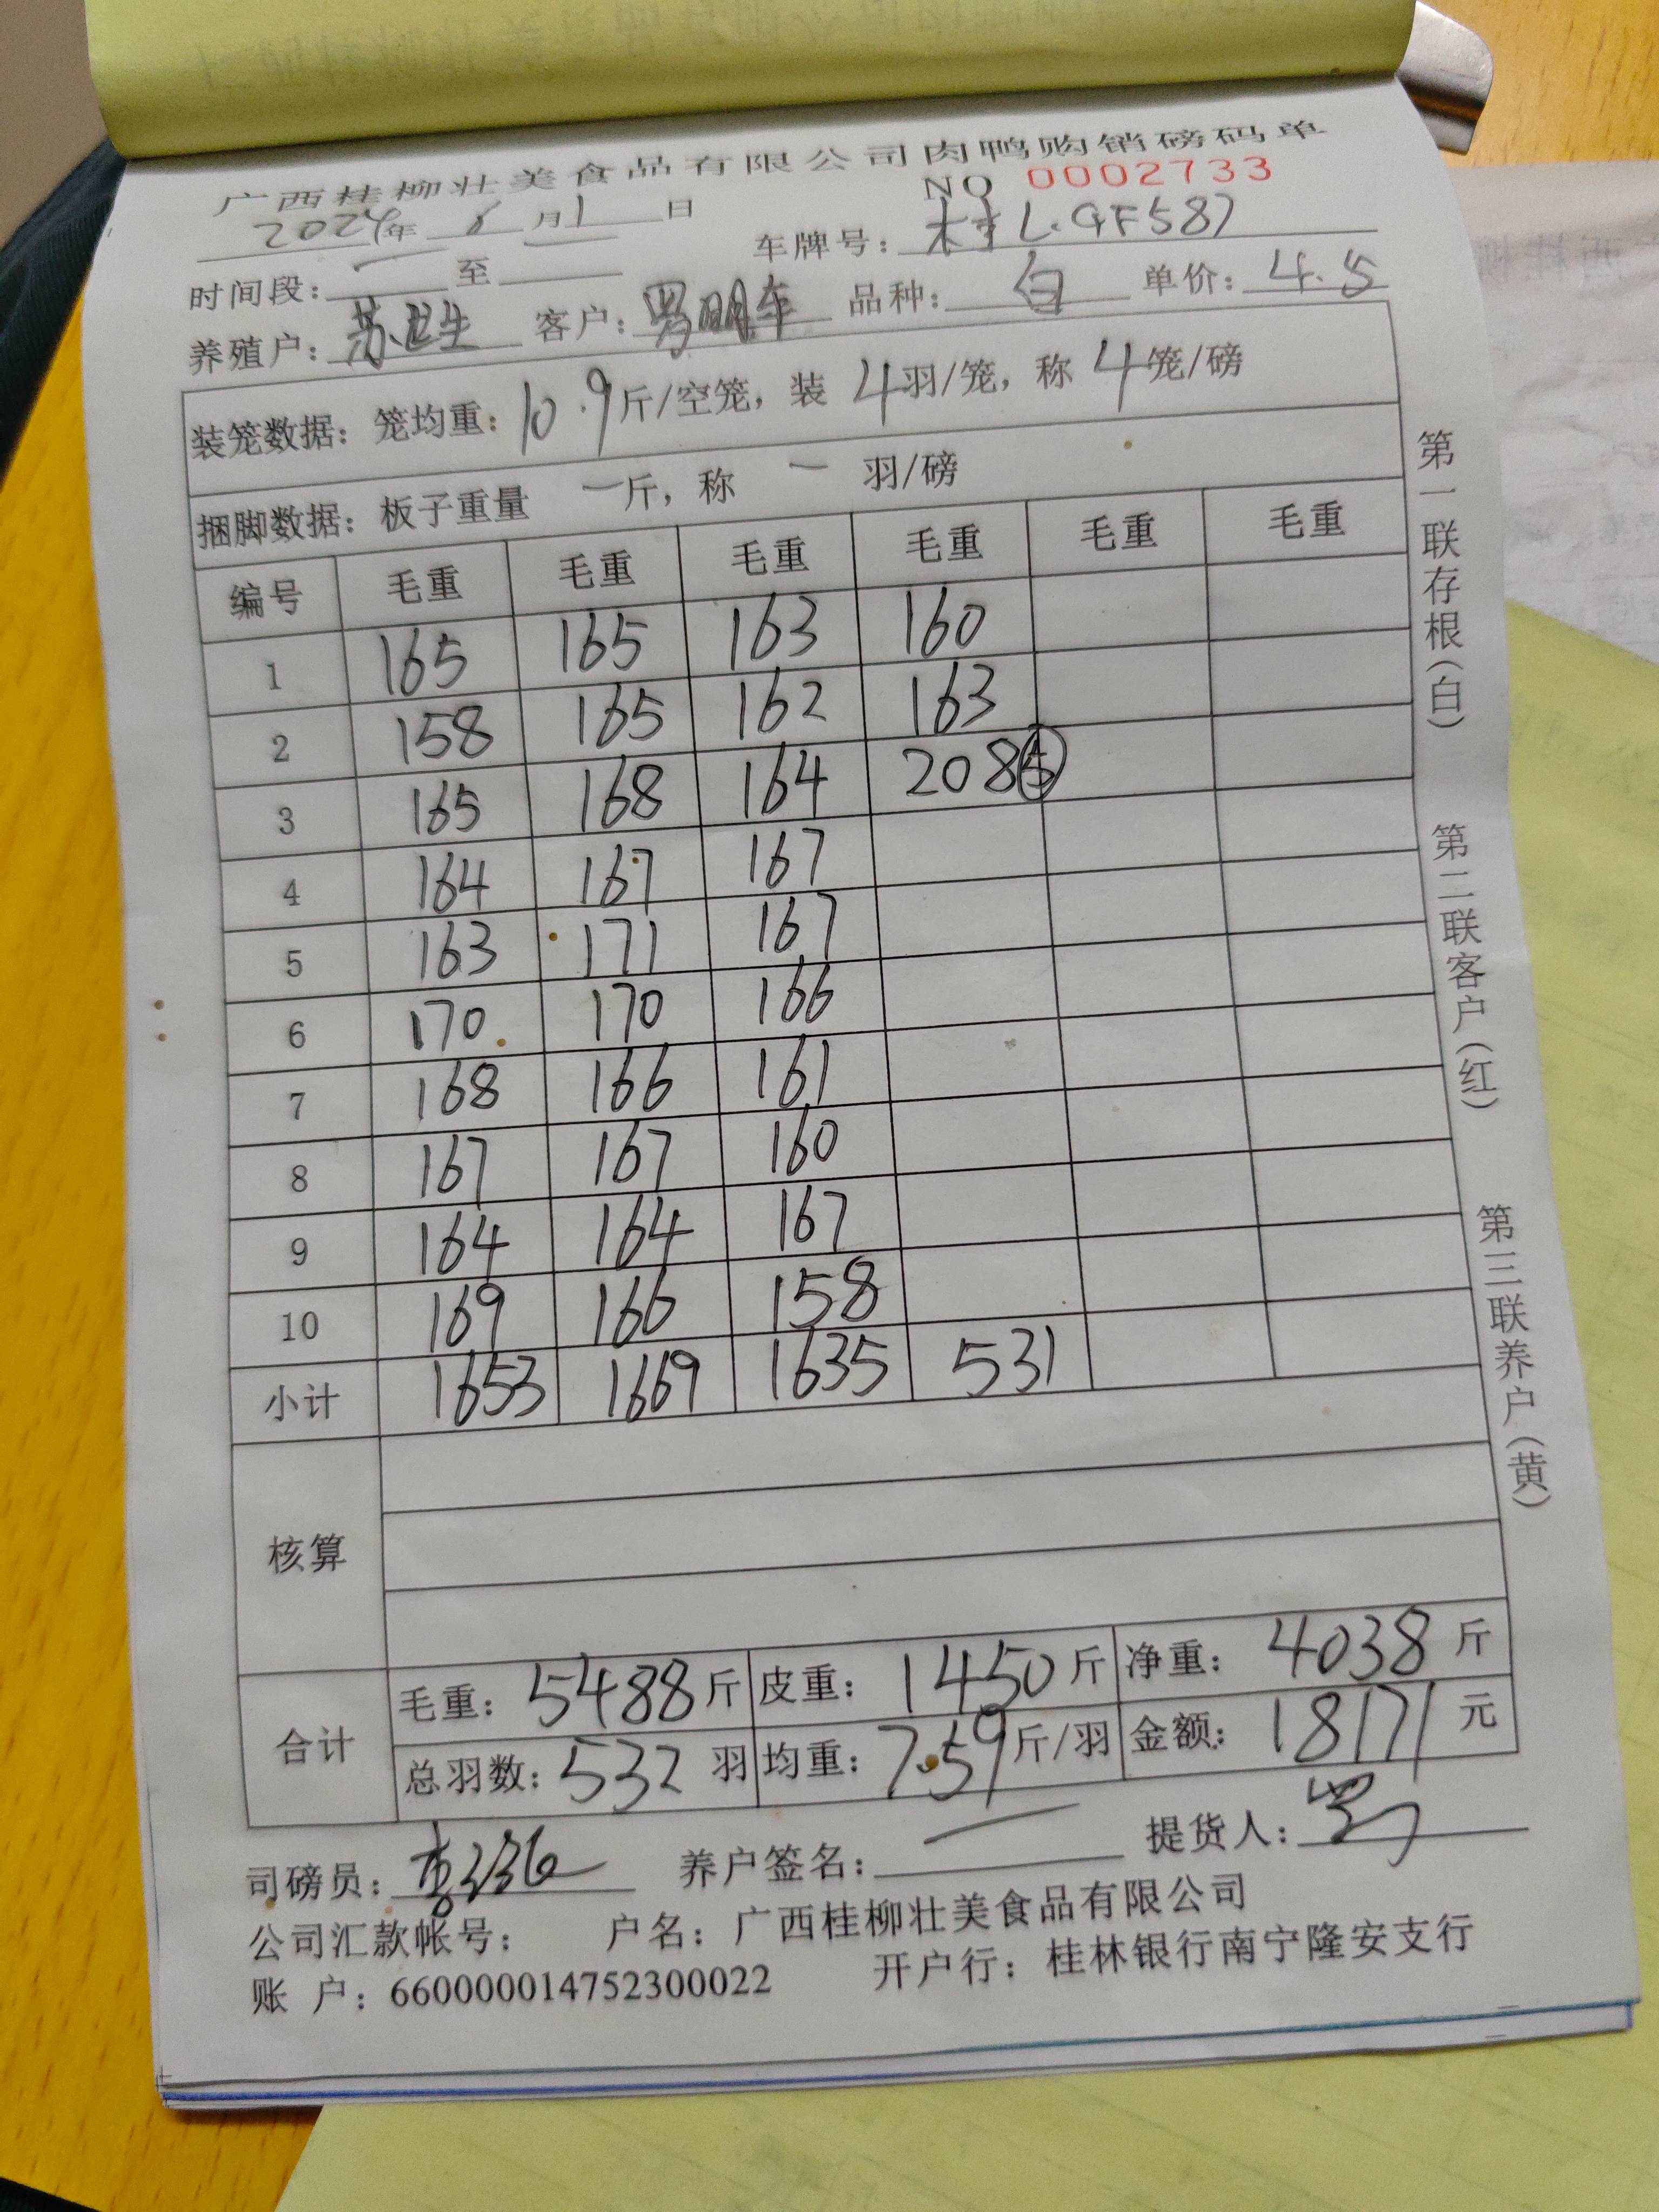 广西桂柳壮美食品有限公司肉鸭购销磅码单
NO 0002733
2024年 6 月 1 日 车牌号: 桂L·9F587
时间段: 一 至
养殖户: 苏卫生 客户: 罗明车 品种: 白 单价: 4.5
装笼数据: 笼均重: 10.9斤/空笼, 装 4羽/笼, 称 4笼/磅
捆脚数据: 板子重量 一斤, 称 一 羽/磅
编号 毛重 毛重 毛重 毛重 毛重 毛重
1 165 165 163 160
2 158 165 162 163
3 165 168 164 208⑤
4 164 167 167
5 163 171 167
6 170 170 166
7 168 166 161
8 167 167 160
9 164 164 167
10 169 166 158
小计 1653 1669 1635 531
核算
合计 毛重: 5488斤 皮重: 1450斤 净重: 4038斤
总羽数: 532 羽 均重: 7.59斤/羽 金额: 18171 元
司磅员: 养户签名: 一 提货人: 罗
公司汇款帐号: 户名: 广西桂柳壮美食品有限公司
账 户: 660000014752300022 开户行: 桂林银行南宁隆安支行
第一联存根(白)
第二联客户(红)
第三联养户(黄)